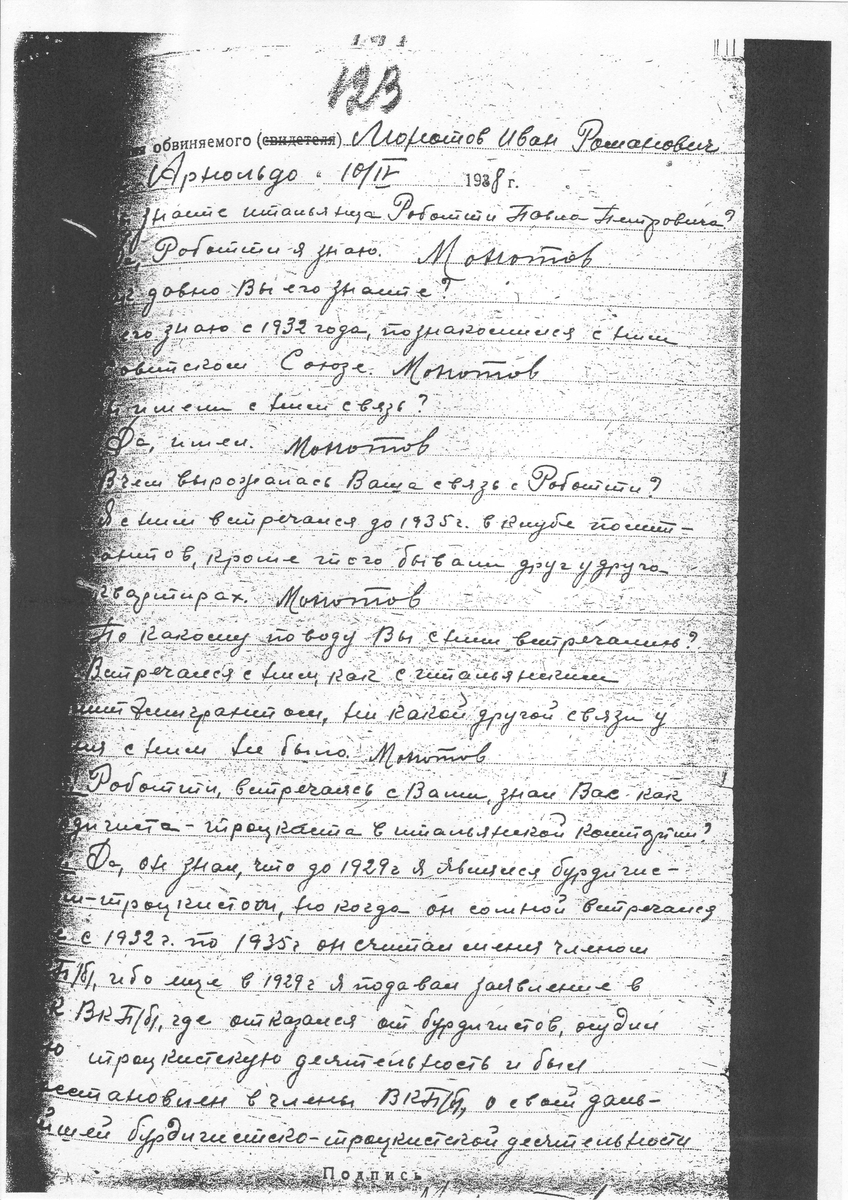 123
обвиняемого (свидетеля) Монотов Иван Романович
Арнольдо " 10/IV 1938 г.
знаете итальянца Роботти Павла Петровича?
Роботти я знаю. Монотов
давно Вы его знаете?
его знаю с 1932 года, познакомился с ним
Союзе. Монотов
имели с ним связь?
Да, имел. Монотов
В чем выражалась Ваша связь с Роботти?
Я с ним встречался до 1935 г. в клубе полит-
кроме того бывали друг у друга
квартирах. Монотов
По какому поводу Вы с ним встречались?
Встречался с ним, как с итальянским
ни какой другой связи у
с ним не было. Монотов
Роботти, встречаясь с Вами, знал Вас как
троцкиста в итальянской компартии?
Да, он знал, что до 1929 г я являлся бурдигис-
троцкистом, но когда он со мной встречался
с 1932 г. по 1935 г он считал меня членом
ибо еще в 1929 г я подавал заявление в
ВКП/б/, где отказался от бурдигистов, осудил
троцкистскую деятельность и был
в члены ВКП/б/, о своей даль-
бурдигистско-троцкистской деятельности
Подпись